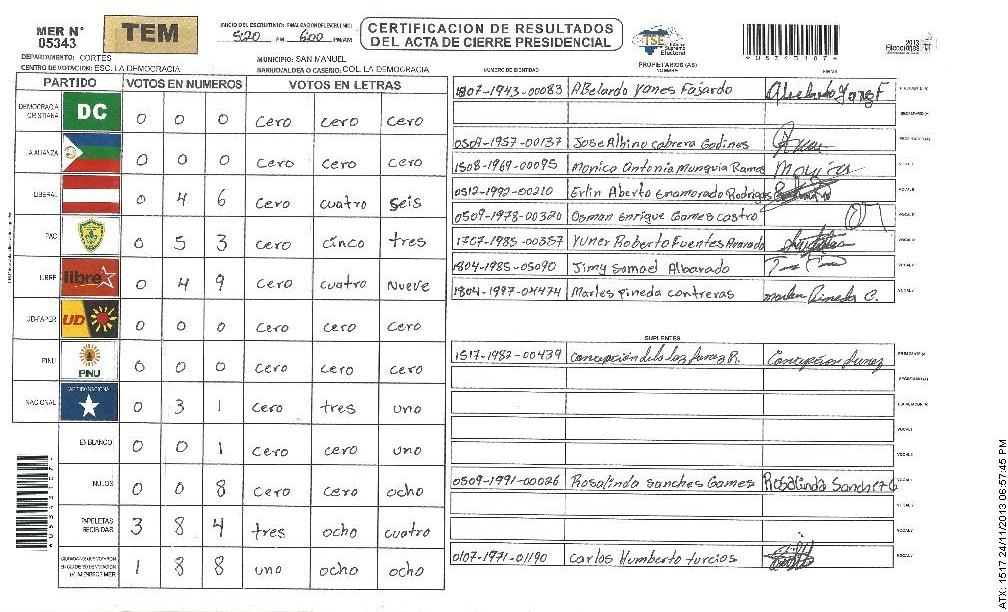 MER N° 05343
TEM
INICIO DEL ESCRUTINIO: FINALIZACION DEL ESCRUTINIO:
5:20 PM 6:00 PM/AM
CERTIFICACION DE RESULTADOS
DEL ACTA DE CIERRE PRESIDENCIAL
TSE Tribunal Supremo Electoral
*05343107*
2013 Elecciones
DEPARTAMENTO: CORTES
MUNICIPIO: SAN MANUEL
CENTRO DE VOTACION: ESC. LA DEMOCRACIA
BARRIO/ALDEA O CASERIO: COL. LA DEMOCRACIA
PARTIDO VOTOS EN NUMEROS VOTOS EN LETRAS
DEMOCRACIA CRISTIANA DC 0 0 0 cero cero cero
LA ALIANZA 0 0 0 cero cero cero
LIBERAL 0 4 6 cero cuatro seis
PAC 0 5 3 cero cinco tres
LIBRE libre 0 4 9 cero cuatro Nueve
UD-FAPER UD 0 0 0 cero cero cero
PINU PINU 0 0 0 cero cero cero
NACIONAL PARTIDO NACIONAL 0 3 1 cero tres uno
EN BLANCO 0 0 1 cero cero uno
NULOS 0 0 8 cero cero ocho
PAPELETAS RECIBIDAS 3 8 4 tres ocho cuatro
CIUDADANOS QUE VOTARON 1 8 8 uno ocho ocho
PROPIETARIOS (AS)
NUMERO DE IDENTIDAD NOMBRE FIRMA
1807-1943-00083 Abelardo Yanes Fajardo
0509-1957-00137 Jose Albino Cabrera Godines
1508-1969-00095 Monica Antonia Munguia Ramos
0512-1992-00210 Erlin Aberto Enamorado Rodrigos
0509-1978-00320 Osman Enrique Gomes Castro
1707-1985-00357 Yuner Roberto Fuentes
1804-1985-05090 Jimy Samael Albarado
1804-1997-04474 Marles Pineda Contreras Marlen Pineda C.
SUPLENTES
1517-1982-00439 Concepcion
0509-1991-00026 Rosalinda Sanches Gomes Rosalinda Sanchez G
0107-1971-01190 Carlos Humberto Turcios
ATX: 1517 24/11/2013 06:57:45 PM